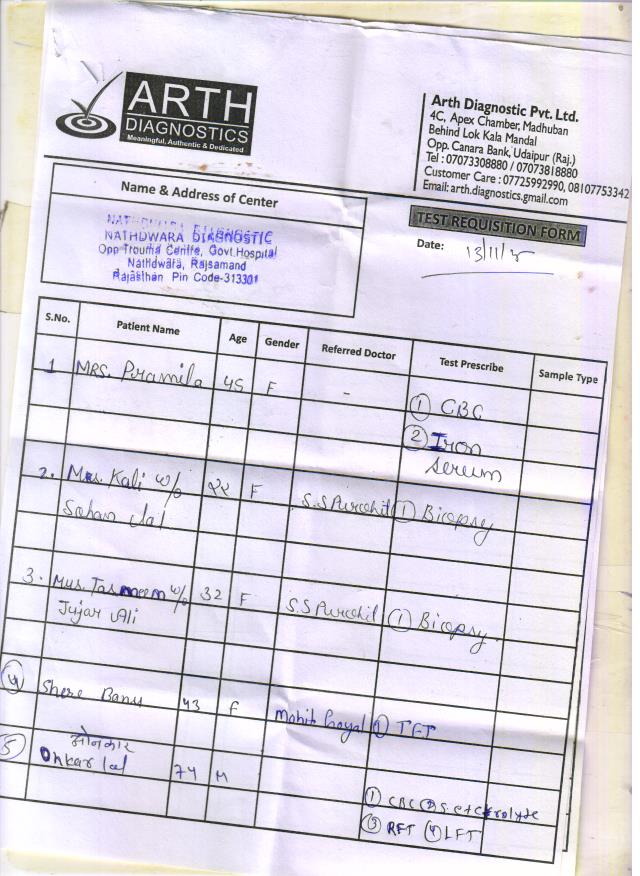 ARTH
DIAGNOSTICS
Meaningful, Authentic & Dedicated
Arth Diagnostic Pvt. Ltd.
4C, Apex Chamber, Madhuban
Behind Lok Kala Mandal
Opp. Canara Bank, Udaipur (Raj.)
Tel : 07073308880 / 07073818880
Customer Care : 07725992990, 08107753342
Email: arth.diagnostics.gmail.com
Name & Address of Center
NATHDWARA DIAGNOSTIC
NATHDWARA DIAGNOSTIC
Opp Trouma Centre, Govt.Hospital
Nathdwara, Rajsamand
Rajasthan Pin Code-313301
TEST REQUISITION FORM
Date: 13/11/
S.No. Patient Name Age Gender Referred Doctor Test Prescribe Sample Type
1 MRS. Pramila 45 F - ① CBC
② Iron
Serum
2. Mrs. Kali w/o २२ F S.S Purohit ① Biopsy
Sohan Lal
3. Mrs. Tasmeem w/o 32 F S.S Purohit ① Biopsy.
Jujar Ali
④ Shere Banu 43 F Mohit ① TFT
⑤ ओनकार
Onkar lal 74 M
① CBC ② S. electrolyte
③ RFT ④ LFT